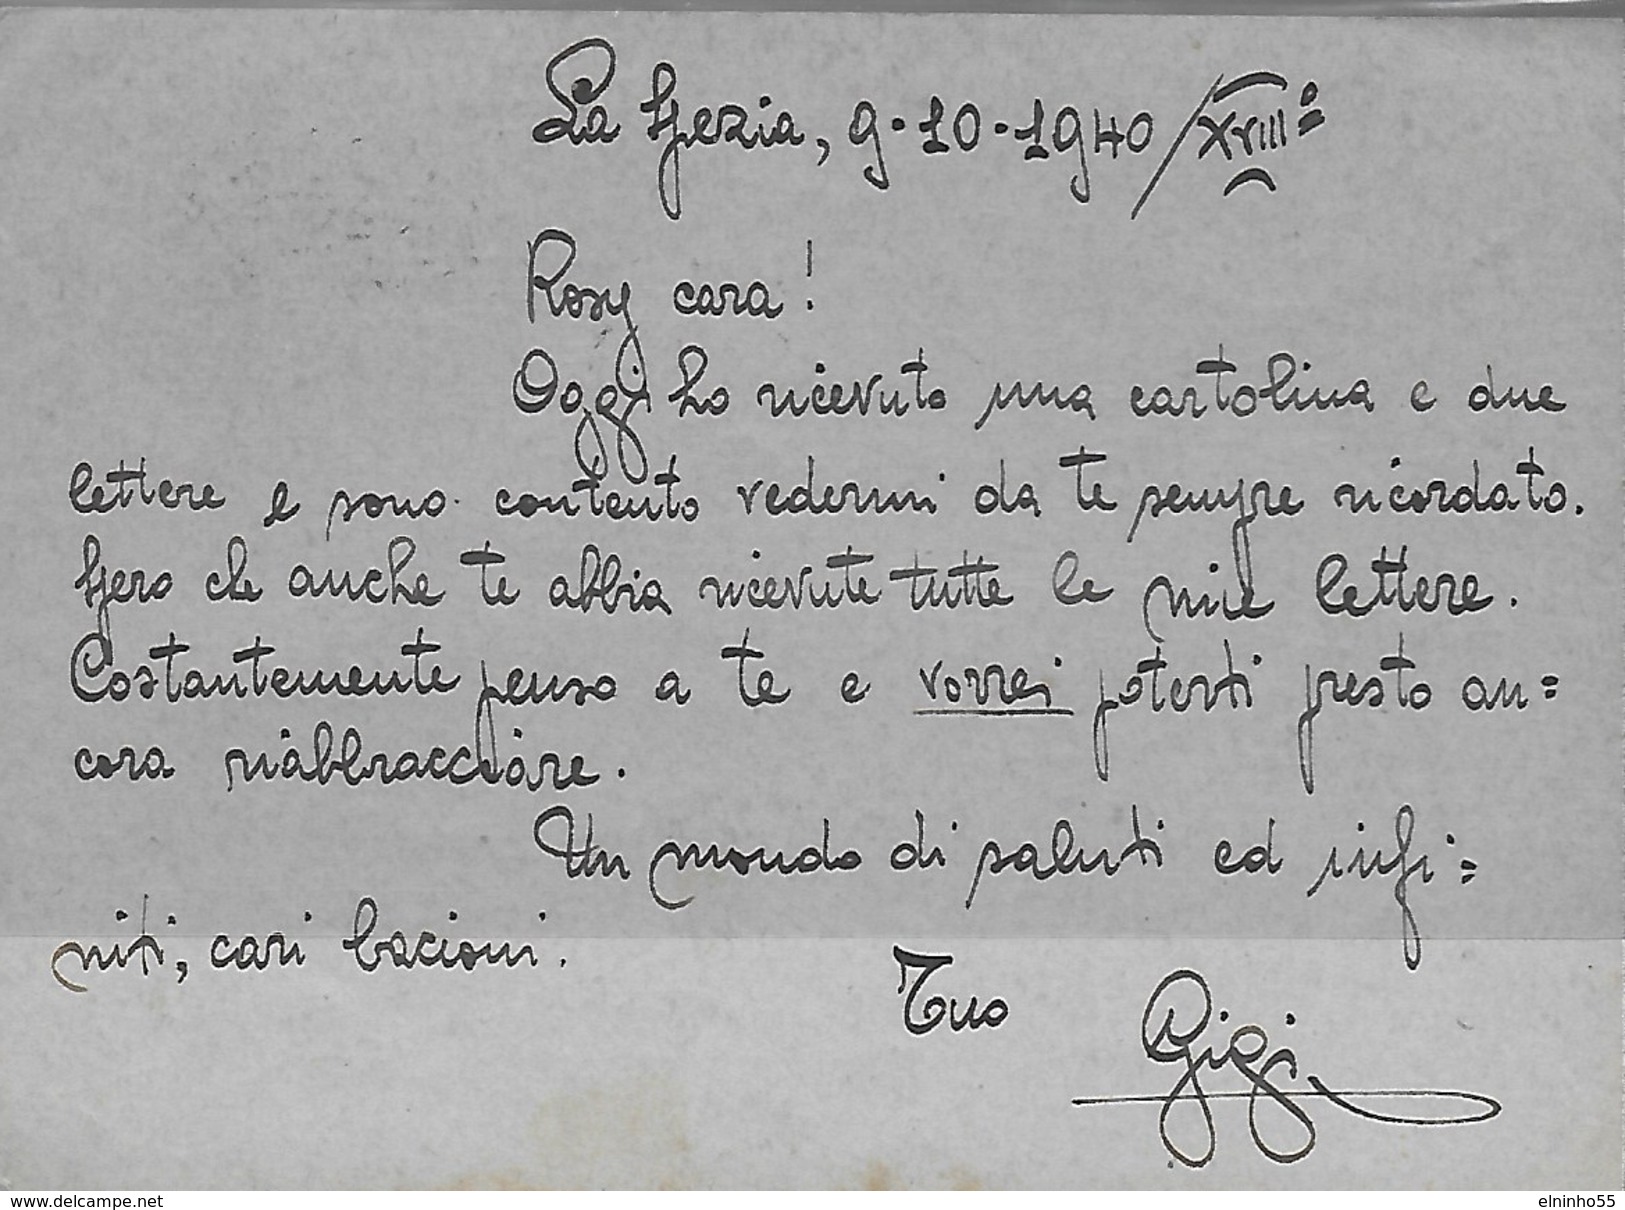 La Spezia, 9.10.1940/XVIII=
Rosy cara!
Oggi ho ricevuto una cartolina e due
lettere e sono contento vedermi da te sempre ricordato.
Spero che anche te abbia ricevute tutte le mie lettere.
Costantemente penso a te e vorrei poterti presto an=
cora riabbracciare.
Un mondo di saluti ed infi=
niti, cari bacioni.
Tuo
Gigi
www.delcampe.net
elninho55